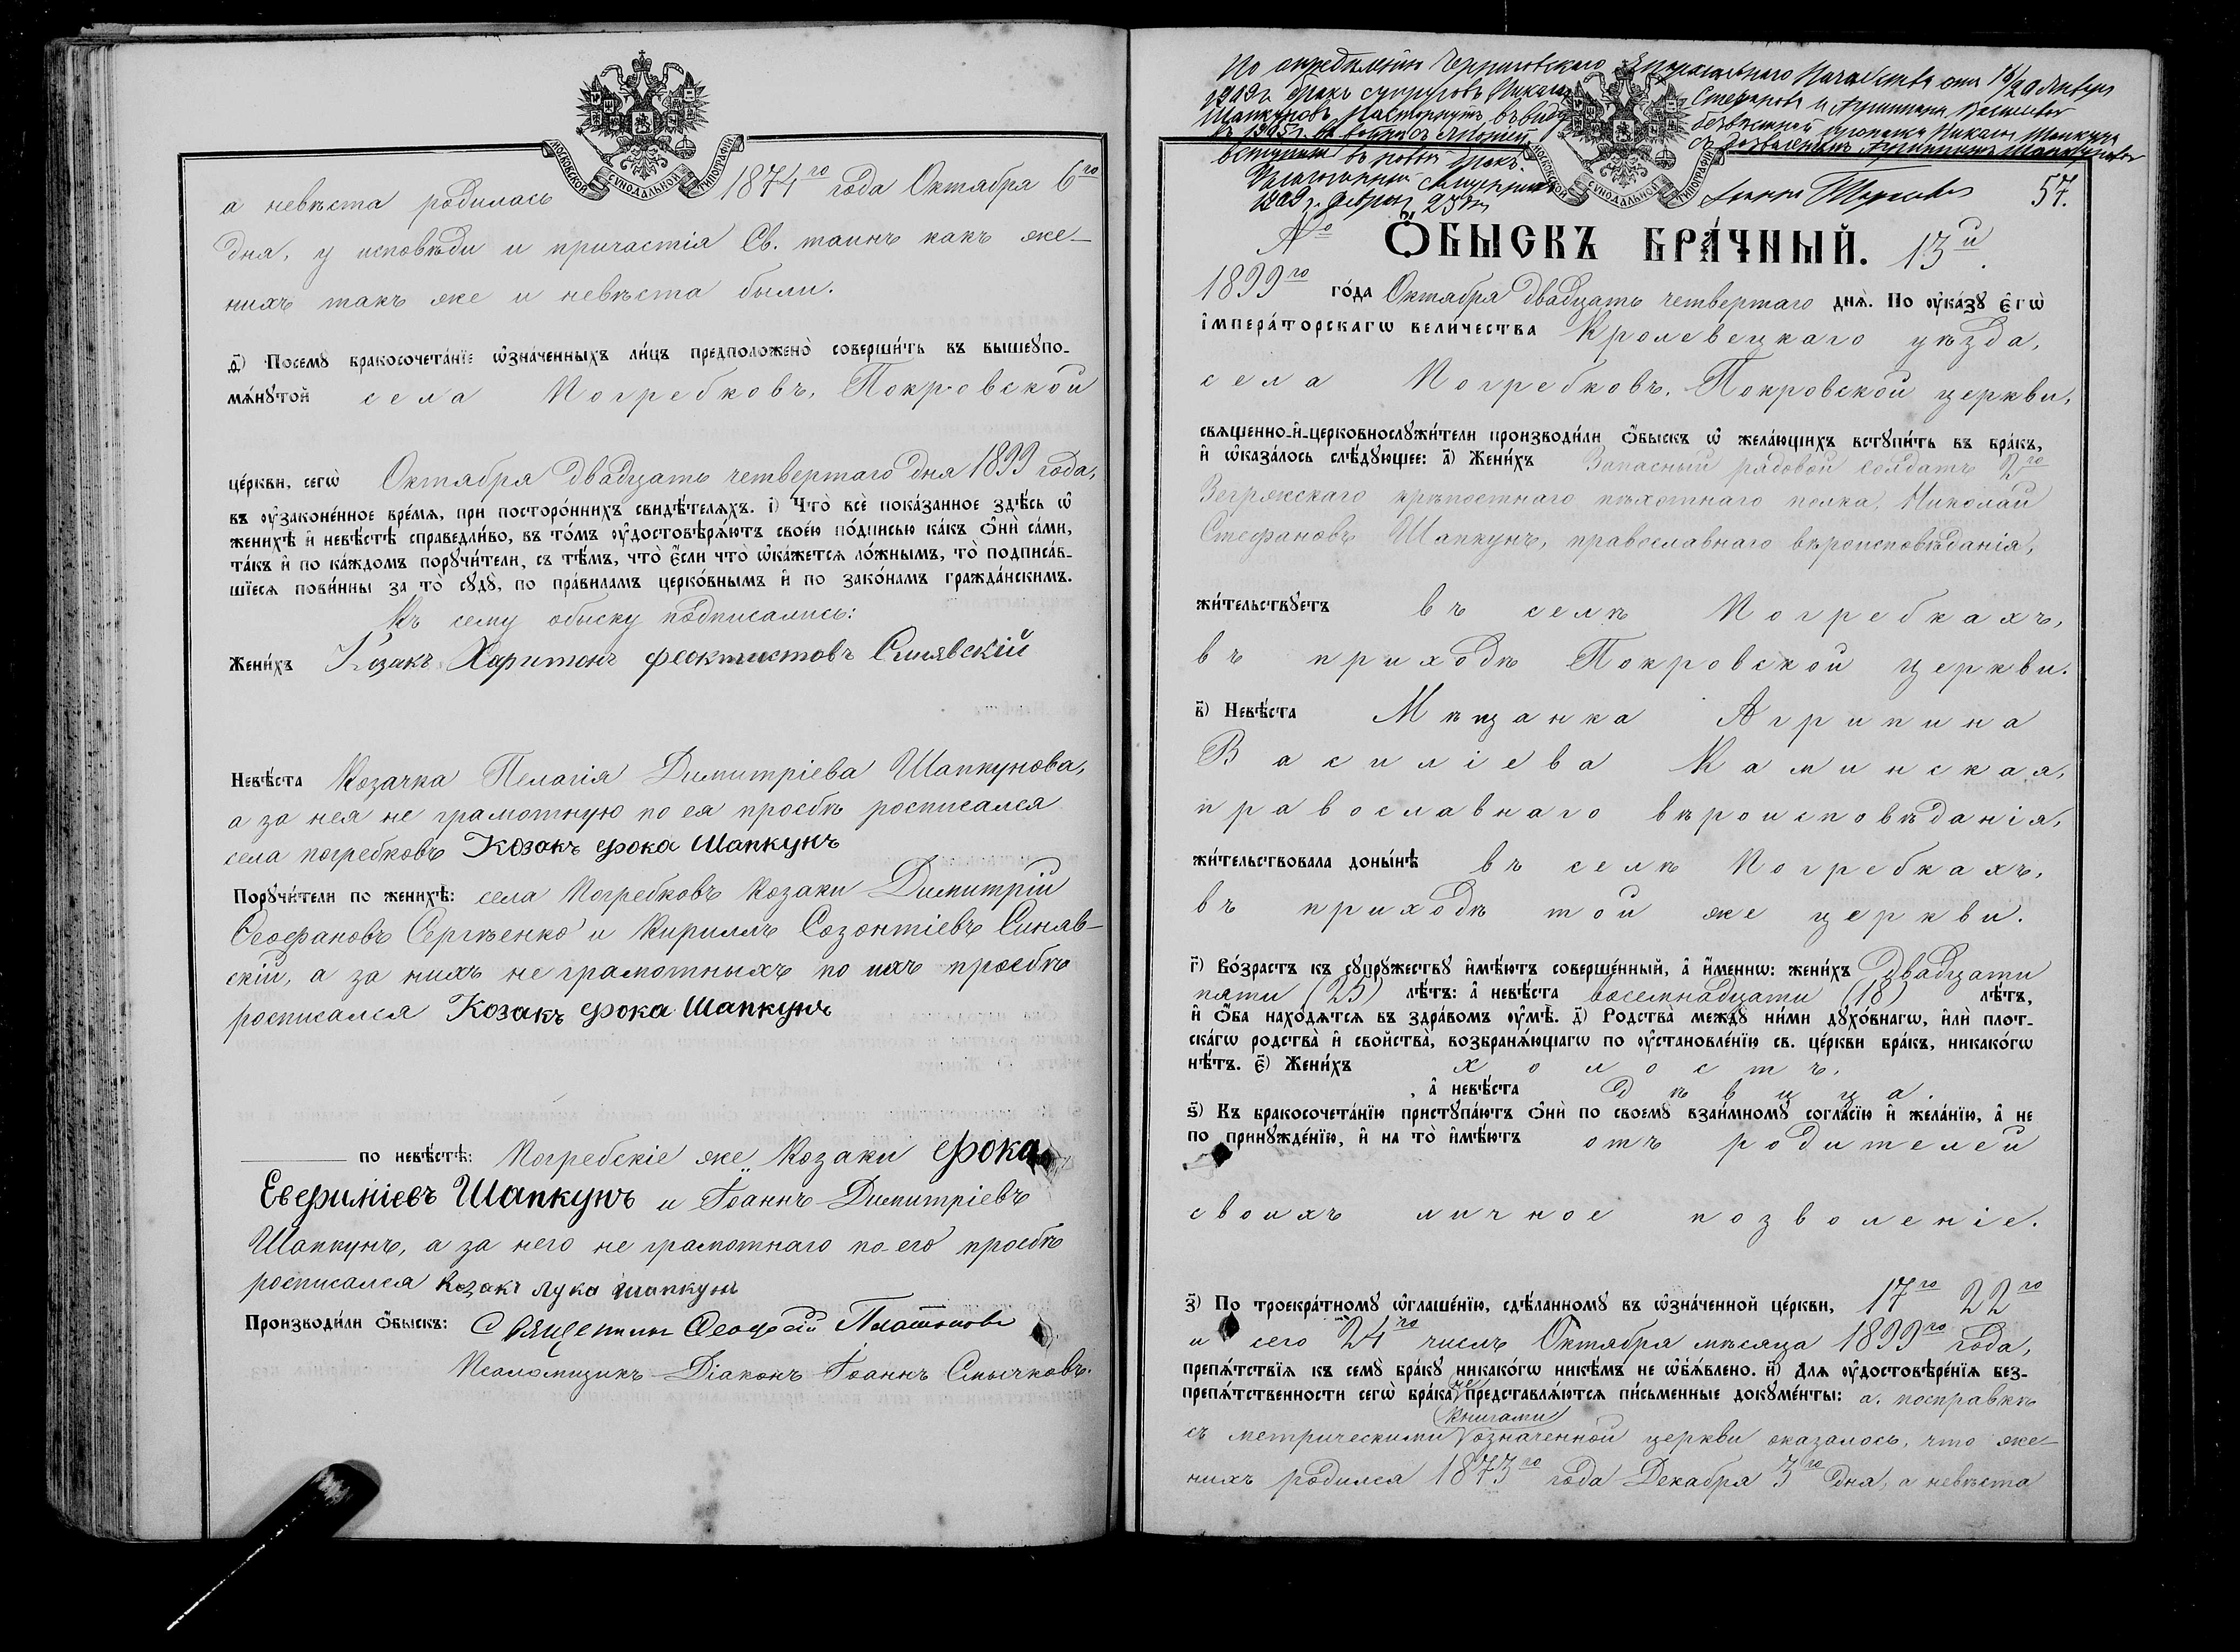 МОСКОВСКОЙ СѴНОДАЛЬНОЙ ТИПОГРАФІИ
а невѣста родилась 1874го года Октября 6го
дня, у исповѣди и причастія Св. таинъ какъ же-
нихъ такъ же и невѣста были.
д҃) Посемꙋ бракосочета́нїе ѡ҆зна́ченныхъ ли́цъ предположено̀ соверши́ть въ вышеꙋпо-
мѧ́нꙋтой села Погребковъ, Покровской
це́ркви, сегѡ̀ Октября двадцать четвертаго дня 1899 года,
въ ᲂу҆законе́нное вре́мѧ, при посторо́ннихъ свидѣ́телѧхъ. і҃) Что̀ всѐ пока́занное здѣ́сь ѡ҆
женихѣ̀ и҆ невѣ́стѣ справедли́во, въ то́мъ ᲂу҆достовѣрѧ́ютъ свое́ю по́дписью ка́къ ѻ҆нѝ са́ми,
та́къ и҆ по ка́ждомъ порꙋчи́тели, съ тѣ́мъ, что̀ є҆́сли что̀ ѡ҆ка́жетсѧ ло́жнымъ, то̀ подписа́в-
шїесѧ пови́нны за то̀ сꙋдꙋ̀, по пра́виламъ церко́внымъ и҆ по зако́намъ гражда́нскимъ.
Къ сему обыску подписались:
Жени́хъ Козакъ Харитонъ Феоктистовъ Синявскій
Невѣ́ста Козачка Пелагія Димитріева Шапкунова,
а за нея не грамотную по ея просбѣ росписался
села погребковъ Козакъ Фока Шапкунъ
Порꙋчи́тели по женихѣ̀: села Погребковъ Козаки Димитрій
Ѳеофановъ Сергѣенко и Кириллъ Созонтіевъ Синяв-
скій, а за нихъ не грамотныхъ по ихъ просбѣ
росписался Козакъ Фока Шапкунъ
по невѣ́стѣ: Погребскіе же Козаки Фока
Евѳиміевъ Шапкунъ и Іоаннъ Димитріевъ
Шапкунъ, а за него не грамотнаго по его просбѣ
росписался Козакъ Лука Шапкунъ
Производи́ли ѻ҆́быскъ: Священникъ Платоновъ
Псаломщикъ-Діаконъ Іоаннъ Смычковъ.
По опредѣленію Черниговскаго Епархіальнаго Начальства отъ 16/20 Января
1909 г. бракъ супруговъ Николая Стефанова и Агрипины Василіевой
Шапкуновъ расторгнутъ, въ виду безвѣстной пропажи Николая Шапкуна
въ 1905 г. въ войнѣ съ Японіей, съ дозволеніемъ Агрипинѣ Шапкуновой
вступить въ новый бракъ.
Священникъ
1909 г. Февр. 25 дня
МОСКОВСКОЙ СѴНОДАЛЬНОЙ ТИПОГРАФІИ
57.
№ Ѻ҆́БЫСКЪ БРА́ЧНЫЙ. 13й.
1899го го́да Октября двадцать четвертаго днѧ̀. По ᲂу҆ка́зꙋ є҆гѡ̀
і҆мпера́торскагѡ вели́чества Кролевецкаго уѣзда,
села Погребковъ, Покровской церкви,
свѧще́нно-и҆-церковнослꙋжи́тели производи́ли ѻ҆́быскъ ѡ҆ жела́ющихъ встꙋпи́ть въ бра́къ,
и҆ ѡ҆каза́лось слѣ́дꙋющее: а҃) Жени́хъ Запасный рядовой солдатъ 2го
Зегржскаго крѣпостнаго пѣхотнаго полка, Николай
Стефановъ Шапкунъ, православнаго вѣроисповѣданія,
жи́тельствꙋетъ въ селѣ Погребкахъ,
въ приходѣ Покровской церкви.
в҃) Невѣ́ста Мѣщанка Агрипина
Василіева Каминская,
православнаго вѣроисповѣданія,
жи́тельствовала доны́нѣ въ селѣ Погребкахъ,
въ приходѣ той же церкви.
г҃) Во́зрастъ къ сꙋпрꙋжествꙋ и҆мѣ́ютъ соверше́нный, а҆ и҆́меннѡ: жени́хъ Двадцати
пяти (25) лѣ́тъ: а҆ невѣ́ста восемнадцати (18) лѣ́тъ,
и҆ ѻ҆́ба нахо́дѧтсѧ въ здра́вомъ ᲂу҆мѣ̀. д҃) Родства̀ междꙋ̀ ни́ми дꙋхо́внагѡ, и҆лѝ плот-
ска́гѡ родства̀ и҆ сво́йства̀, возбранѧ́ющагѡ по ᲂу҆становле́нїю св. це́ркви бра́къ, никако́гѡ
нѣ́тъ. є҃) Жени́хъ холостъ,
, а҆ невѣ́ста дѣвица.
ѕ҃) Къ бракосочета́нїю пристꙋпа́ютъ ѻ҆нѝ по своемꙋ̀ взаи́мномꙋ согла́сїю и҆ жела́нїю, а҆ не
по принꙋжде́нїю, и҆ на то̀ и҆мѣ́ютъ отъ родителей
своихъ личное позволеніе.
з҃) По троекра́тномꙋ ѡ҆глаше́нїю, сдѣ́ланномꙋ въ ѡ҆зна́ченной це́ркви, 17го 22го
и сего 24го числъ Октября мѣсяца 1899го года,
препѧ́тствїѧ къ семꙋ̀ бра́кꙋ никако́гѡ никѣ́мъ не ѡ҆б̾ѧ́влено. и҃) Длѧ ᲂу҆достовѣре́нїѧ без-
препѧ́тственности сегѡ̀ бра́ка не представлѧ́ютсѧ пи́сьменные докꙋме́нты: а. посправкѣ
съ метрическими книгами означенной церкви оказалось, что же-
нихъ родился 1873го года Декабря 3го дня, а невѣста